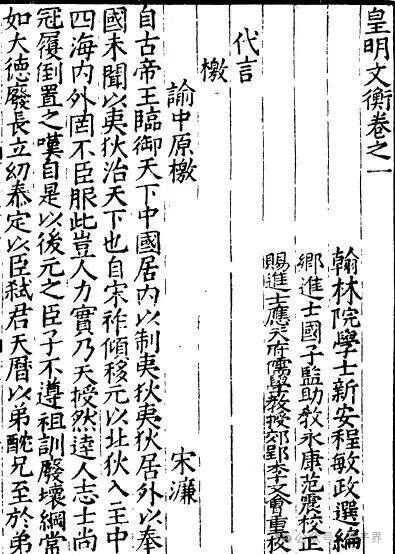 皇明文衡卷之一
翰林院學士新安程敏政選編
鄉進士國子監助教永康范震校正
賜進士應天府儒學教授郊郢李文會重校
代言
檄
諭中原檄
宋濂
自古帝王臨御天下中國居内以制夷狄夷狄居外以奉
國未聞以夷狄治天下也自宋祚傾移元以北狄入主中
四海内外罔不臣服此豈人力實乃天授然達人志士尚
冠履倒置之嘆自是以後元之臣子不遵祖訓廢壞綱常
如大德廢長立幼泰定以臣弑君天曆以弟酖兄至於弟